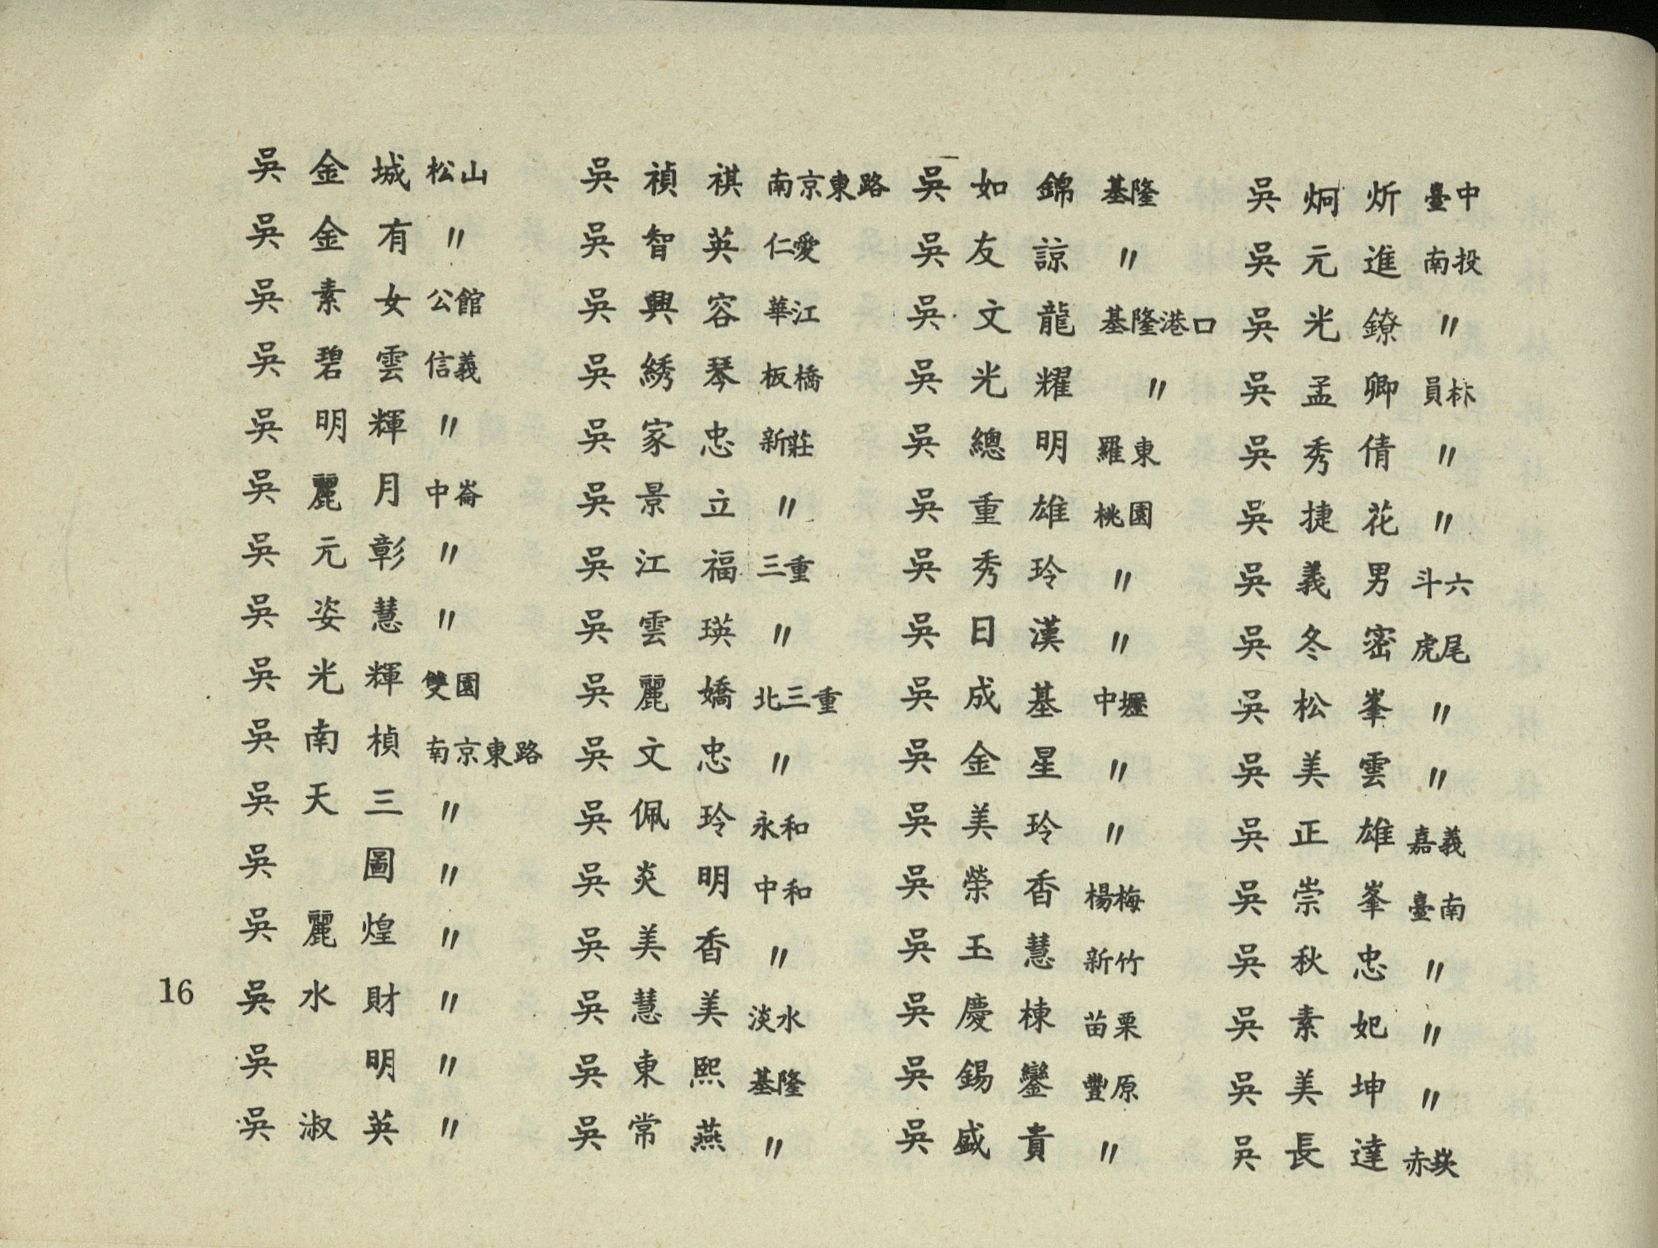 吳金城 松山
吳金有 〃
吳素女 公館
吳碧雲 信義
吳明輝 〃
吳麗月 中崙
吳元彰 〃
吳姿慧 〃
吳光輝 雙園
吳南楨 南京東路
吳天三 〃
吳圖 〃
吳麗煌 〃
吳水財 〃
吳明 〃
吳淑英 〃
吳禎祺 南京東路
吳智英 仁愛
吳興容 華江
吳綉琴 板橋
吳家忠 新莊
吳景立 〃
吳江福 三重
吳雲瑛 〃
吳麗嬌 北三重
吳文忠 〃
吳佩玲 永和
吳炎明 中和
吳美香 〃
吳慧美 淡水
吳東熙 基隆
吳常燕 〃
吳如錦 基隆
吳友諒 〃
吳文龍 基隆港口
吳光耀 〃
吳總明 羅東
吳重雄 桃園
吳秀玲 〃
吳日漢 〃
吳成基 中壢
吳金星 〃
吳美玲 〃
吳榮香 楊梅
吳玉慧 新竹
吳慶棟 苗栗
吳錫鑾 豐原
吳盛貴 〃
吳炯炘 臺中
吳元進 南投
吳光鐐 〃
吳孟卿 員林
吳秀倩 〃
吳捷花 〃
吳義男 斗六
吳冬密 虎尾
吳松峯 〃
吳美雲 〃
吳正雄 嘉義
吳崇峯 臺南
吳秋忠 〃
吳素妃 〃
吳美坤 〃
吳長達 赤崁
16